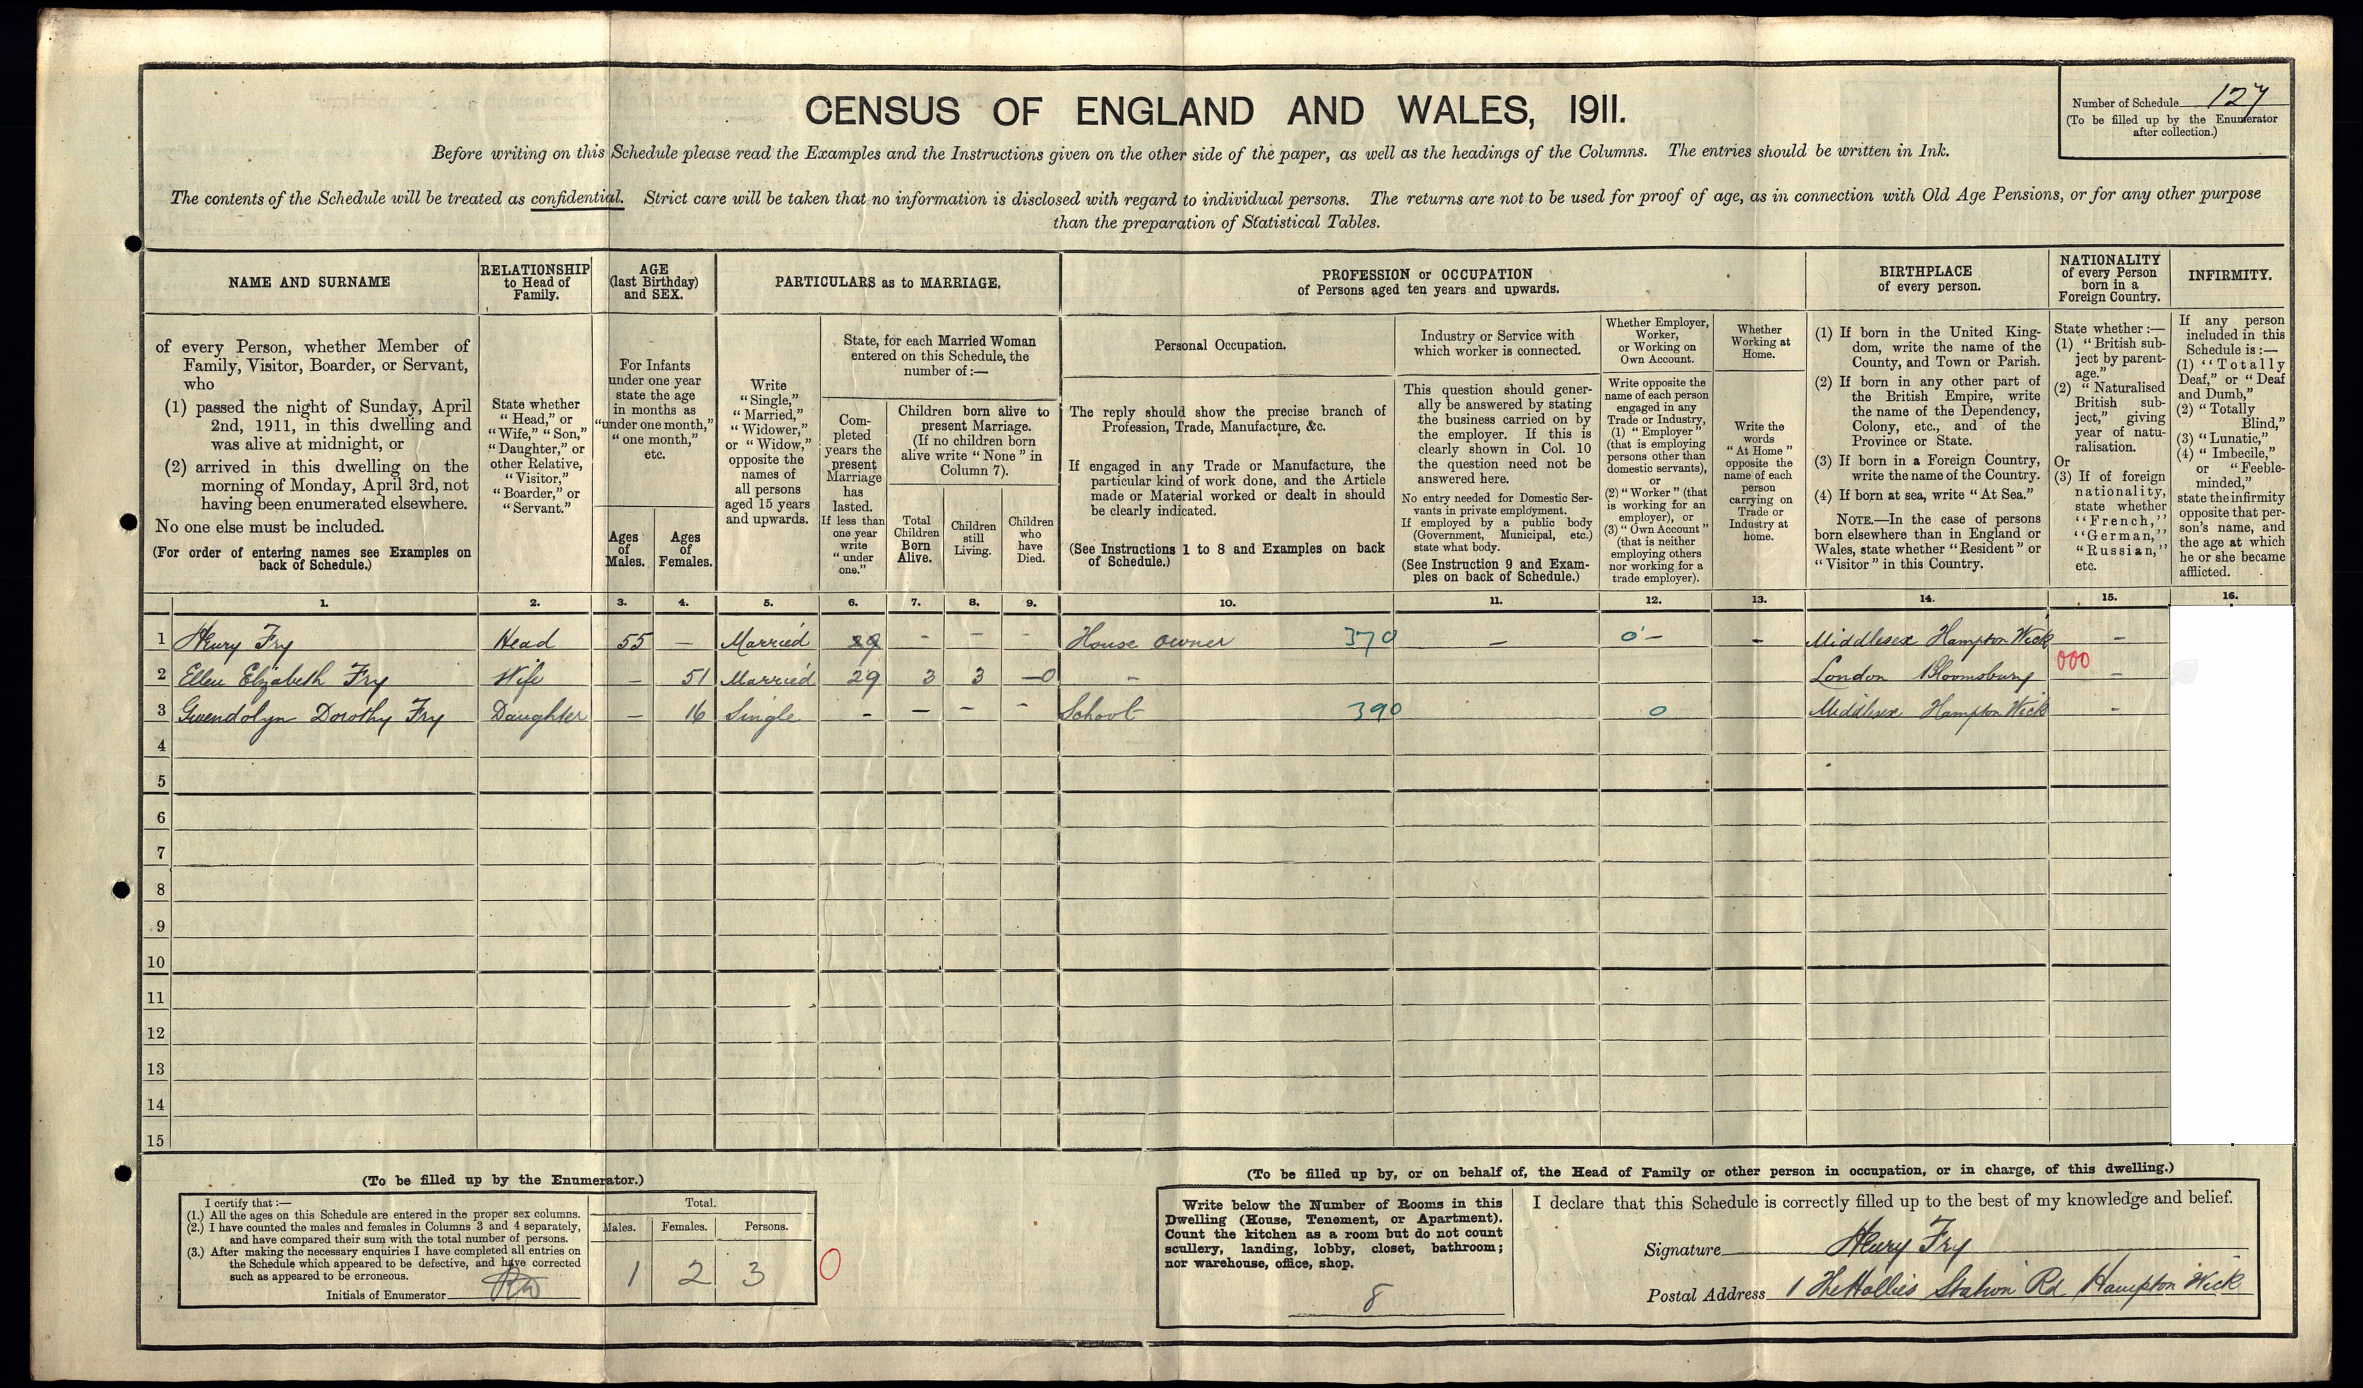 CENSUS OF ENGLAND AND WALES, 1911.
Number of Schedule 127
(To be filled up by the Enumerator
after collection.)
Before writing on this Schedule please read the Examples and the Instructions given on the other side of the paper, as well as the headings of the Columns. The entries should be written in Ink.
The contents of the Schedule will be treated as confidential. Strict care will be taken that no information is disclosed with regard to individual persons. The returns are not to be used for proof of age, as in connection with Old Age Pensions, or for any other purpose
than the preparation of Statistical Tables.
NAME AND SURNAME
of every Person, whether Member of
Family, Visitor, Boarder, or Servant,
who
(1) passed the night of Sunday, April
2nd, 1911, in this dwelling and
was alive at midnight, or
(2) arrived in this dwelling on the
morning of Monday, April 3rd, not
having been enumerated elsewhere.
No one else must be included.
(For order of entering names see Examples on
back of Schedule.)
RELATIONSHIP
to Head of
Family.
State whether
"Head," or
"Wife," "Son,"
"Daughter," or
other Relative,
"Visitor,"
"Boarder," or
"Servant."
AGE
(last Birthday)
and SEX.
For Infants
under one year
state the age
in months as
"under one month,"
"one month,"
etc.
Ages
of
Males.
Ages
of
Females.
PARTICULARS as to MARRIAGE.
Write
"Single,"
"Married,"
"Widower,"
or "Widow,"
opposite the
names of
all persons
aged 15 years
and upwards.
State, for each Married Woman
entered on this Schedule, the
number of:—
Com-
pleted
years the
present
Marriage
has
lasted.
If less than
one year
write
"under
one."
Children born alive to
present Marriage.
(If no children born
alive write "None" in
Column 7).
Total
Children
Born
Alive.
Children
still
Living.
Children
who
have
Died.
PROFESSION or OCCUPATION
of Persons aged ten years and upwards.
Personal Occupation.
The reply should show the precise branch of
Profession, Trade, Manufacture, &c.
If engaged in any Trade or Manufacture, the
particular kind of work done, and the Article
made or Material worked or dealt in should
be clearly indicated.
(See Instructions 1 to 8 and Examples on back
of Schedule.)
Industry or Service with
which worker is connected.
This question should gener-
ally be answered by stating
the business carried on by
the employer. If this is
clearly shown in Col. 10
the question need not be
answered here.
No entry needed for Domestic Ser-
vants in private employment.
If employed by a public body
(Government, Municipal, etc.)
state what body.
(See Instruction 9 and Exam-
ples on back of Schedule.)
Whether Employer,
Worker,
or Working on
Own Account.
Write opposite the
name of each person
engaged in any
Trade or Industry,
(1) "Employer"
(that is employing
persons other than
domestic servants),
or
(2) "Worker" (that
is working for an
employer), or
(3) "Own Account"
(that is neither
employing others
nor working for a
trade employer).
Whether
Working at
Home.
Write the
words
"At Home"
opposite the
name of each
person
carrying on
Trade or
Industry at
home.
BIRTHPLACE
of every person.
(1) If born in the United King-
dom, write the name of the
County, and Town or Parish.
(2) If born in any other part of
the British Empire, write
the name of the Dependency,
Colony, etc., and of the
Province or State.
(3) If born in a Foreign Country,
write the name of the Country.
(4) If born at sea, write "At Sea."
NOTE.—In the case of persons
born elsewhere than in England or
Wales, state whether "Resident" or
"Visitor" in this Country.
NATIONALITY
of every Person
born in a
Foreign Country.
State whether:—
(1) "British sub-
ject by parent-
age."
(2) "Naturalised
British sub-
ject," giving
year of natu-
ralisation.
Or
(3) If of foreign
nationality,
state whether
"French,"
"German,"
"Russian,"
etc.
INFIRMITY.
If any person
included in this
Schedule is:—
(1) "Totally
Deaf," or "Deaf
and Dumb,"
(2) "Totally
Blind,"
(3) "Lunatic,"
(4) "Imbecile,"
or "Feeble-
minded,"
state the infirmity
opposite that per-
son's name, and
the age at which
he or she became
afflicted.
1. 2. 3. 4. 5. 6. 7. 8. 9. 10. 11. 12. 13. 14. 15. 16.
1 Henry Fry Head 55 — Married 29 - - - House owner 370 — 0 — - Middlesex Hampton Wick -
000
2 Ellen Elizabeth Fry Wife — 51 Married 29 3 3 —0 - London Bloomsbury -
3 Gwendolyn Dorothy Fry Daughter — 16 Single - - - - School 390 0 Middlesex Hampton Wick -
4
5
6
7
8
9
10
11
12
13
14
15
(To be filled up by the Enumerator.)
I certify that:—
(1.) All the ages on this Schedule are entered in the proper sex columns.
(2.) I have counted the males and females in Columns 3 and 4 separately,
and have compared their sum with the total number of persons.
(3.) After making the necessary enquiries I have completed all entries on
the Schedule which appeared to be defective, and have corrected
such as appeared to be erroneous.
Initials of Enumerator
Total.
Males. Females. Persons.
1 2 3 0
(To be filled up by, or on behalf of, the Head of Family or other person in occupation, or in charge, of this dwelling.)
Write below the Number of Rooms in this
Dwelling (House, Tenement, or Apartment).
Count the kitchen as a room but do not count
scullery, landing, lobby, closet, bathroom;
nor warehouse, office, shop.
8
I declare that this Schedule is correctly filled up to the best of my knowledge and belief.
Signature Henry Fry
Postal Address 1 The Hollies Station Rd Hampton Wick